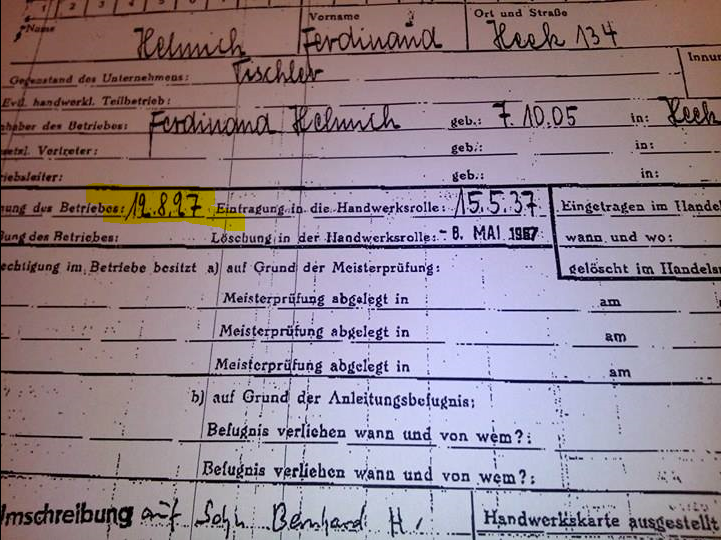 1 2 3 4 5 6 7 8
Name Vorname Ort und Straße
Helmich Ferdinand Heek 134
Gegenstand des Unternehmens: Tischler Innun
Evtl. handwerkl. Teilbetrieb:
nhaber des Betriebes: Ferdinand Helmich geb.: 7.10.05 in: Heek
setzl. Vertreter: geb.: in:
riebsleiter: geb.: in:
nung des Betriebes: 12.8.27 Eintragung in die Handwerksrolle: 15.5.37 Eingetragen im Handel
ßung des Betriebes: Löschung in der Handwerksrolle: - 8. MAI 1967 wann und wo:
echtigung im Betriebe besitzt a) auf Grund der Meisterprüfung: gelöscht im Handels
Meisterprüfung abgelegt in am
Meisterprüfung abgelegt in am
Meisterprüfung abgelegt in am
b) auf Grund der Anleitungsbefugnis:
Befugnis verliehen wann und von wem?:
Befugnis verliehen wann und von wem?:
Umschreibung auf Sohn Bernhard H. Handwerkskarte ausgestellt